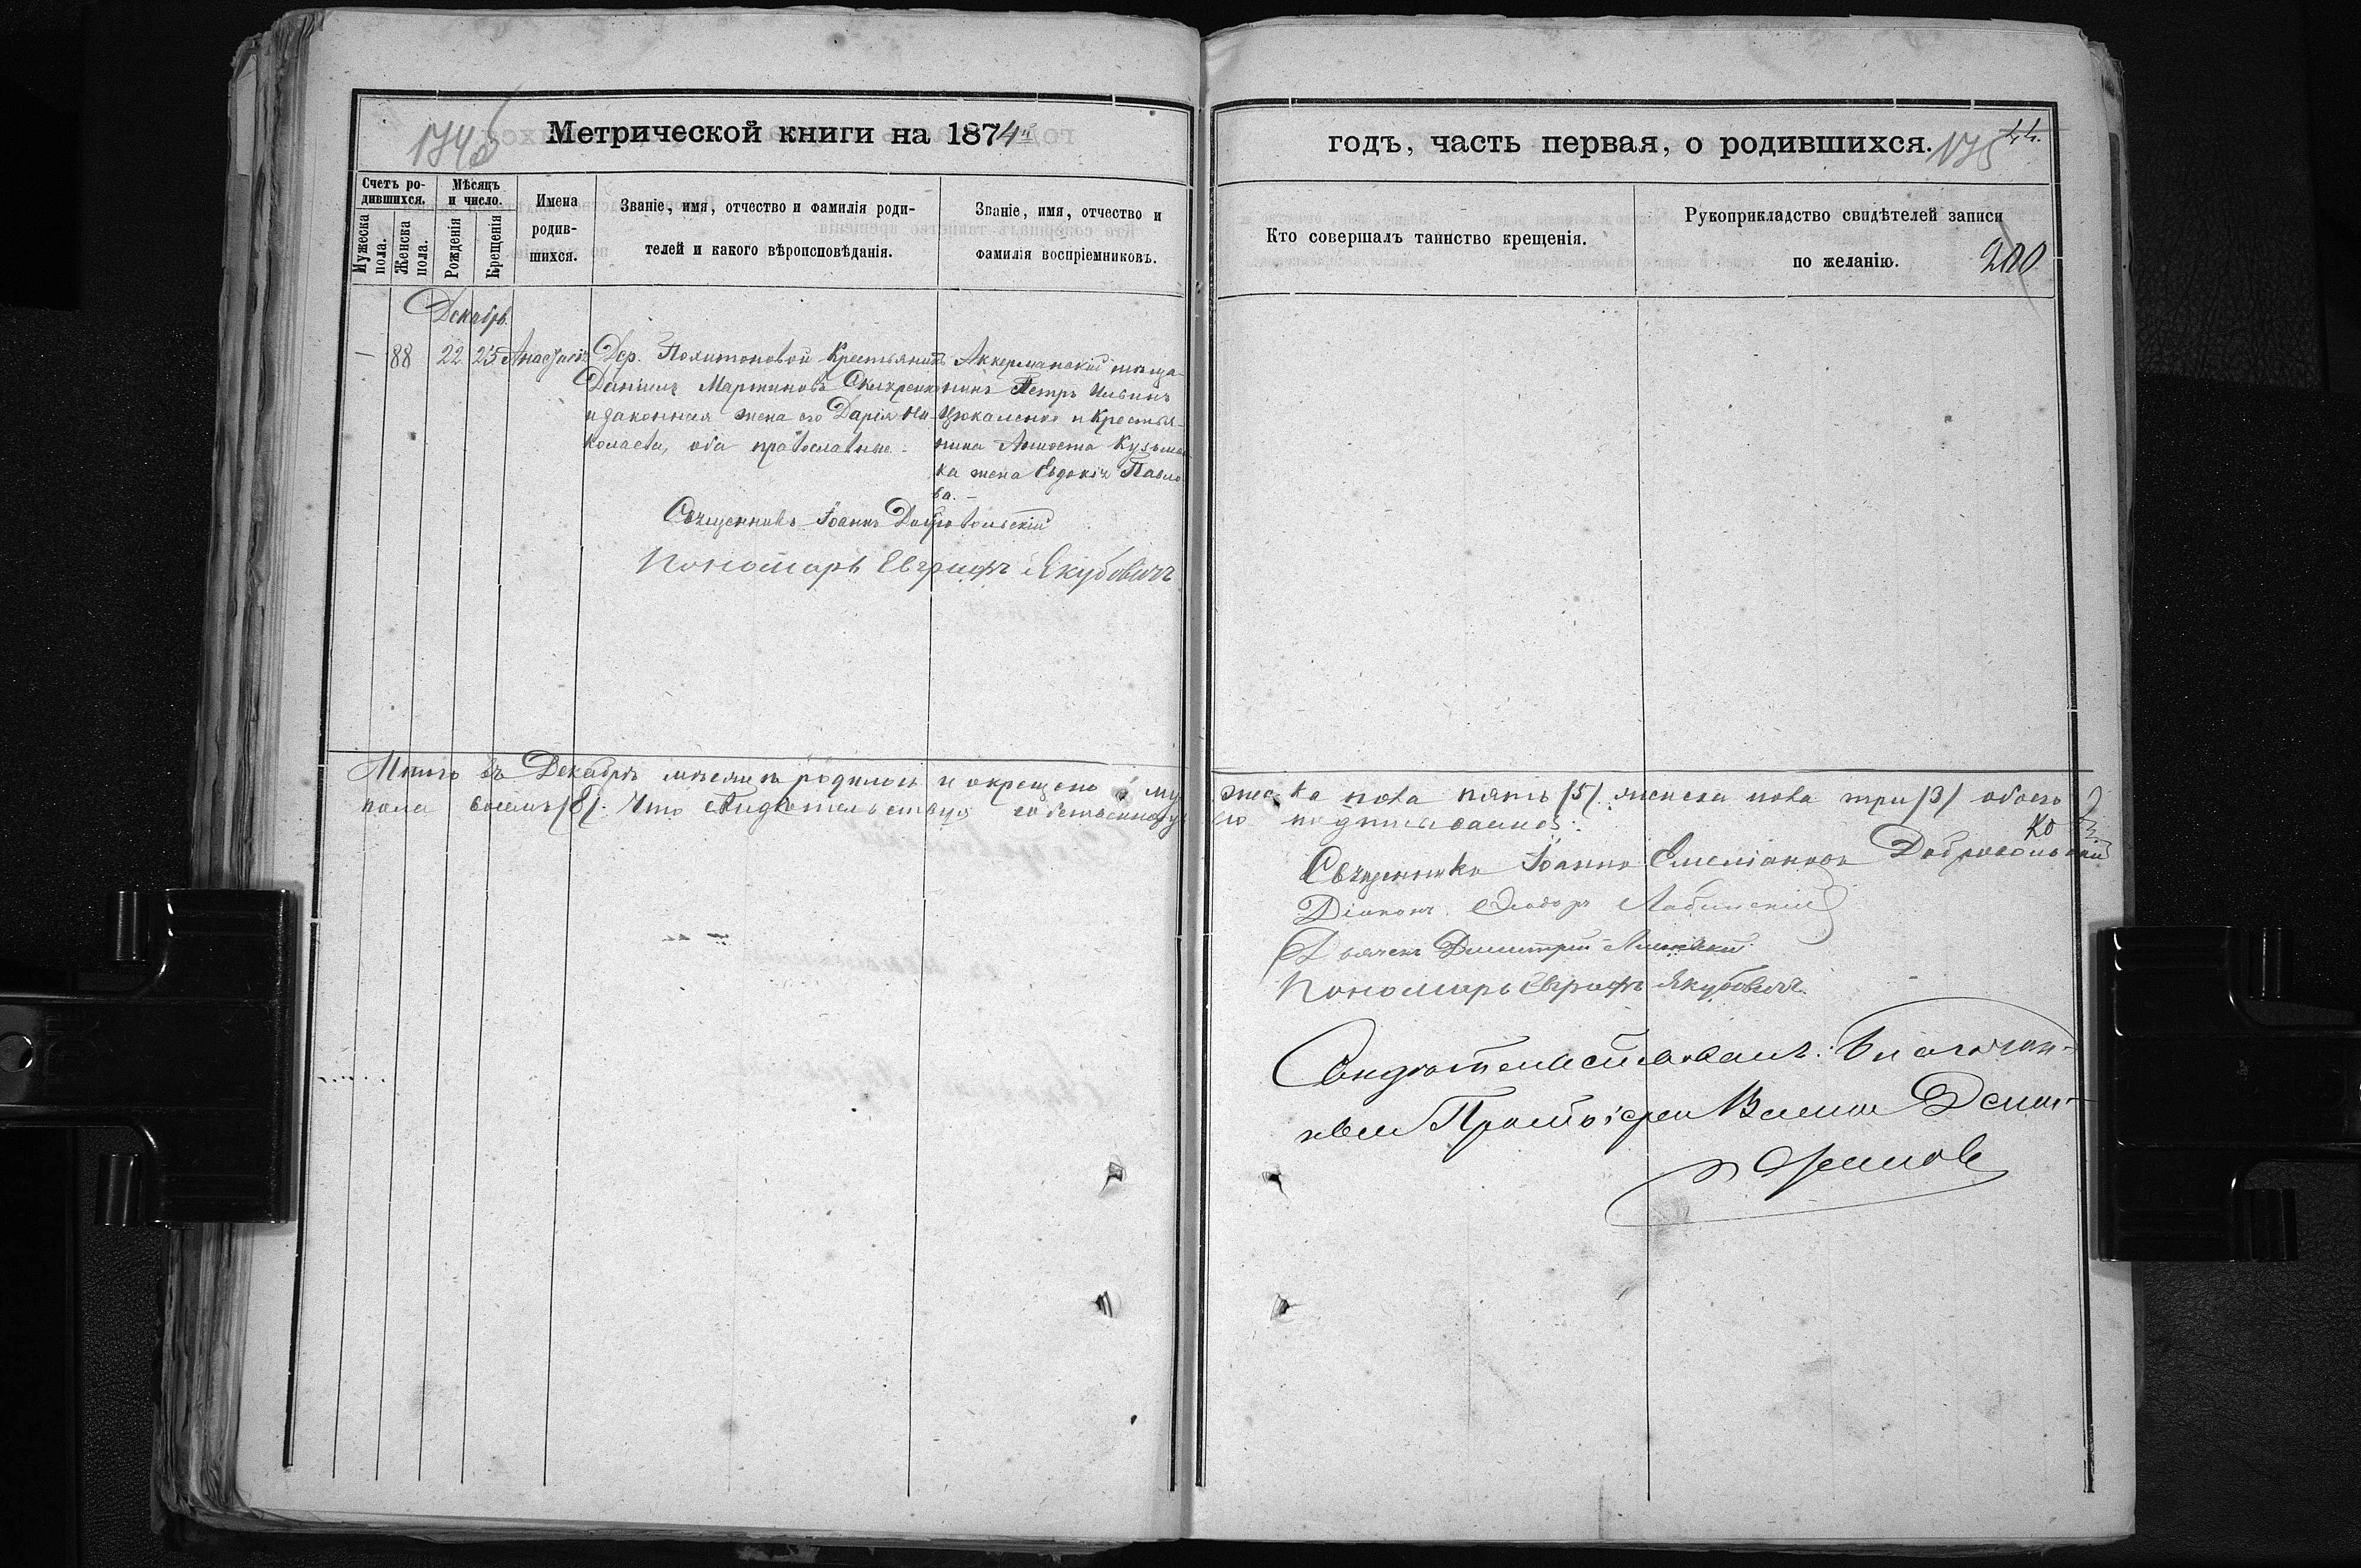 Метрической книги на 1874й
годъ, часть первая, о родившихся.
175
44.
Счетъ родившихся.
Мужеска пола.
Женска пола.
Мѣсяцъ и число.
Рожденія
Крещенія
Имена родив-
шихся.
Званіе, имя, отчество и фамилія роди-
телей и какого вѣроисповѣданія.
Званіе, имя, отчество и
фамилія воспріемниковъ.
Кто совершалъ таинство крещенія.
Рукоприкладство свидѣтелей записи
по желанію.
200
Декабрь.
— 88 22 25 Анастасія
Дер. Политоновой Крестьянинъ
Даніилъ Мартиновъ
и законная жена его Дарія Ни-
колаева, оба православные.
Аккерманскій мѣща-
нинъ Петръ Ильинъ
Цюкаленко и Крестья-
нина
жена Евдокія Павло-
ва. —
Священникъ Іоаннъ Добровольскій
Пономарь Евграфъ Якубовичъ
Итого въ Декабрѣ мѣсяцѣ родилось и окрещено му-
жеска пола пять /5/ женска пола три /3/ обоего
пола восемь /8/. Что свидѣтельствуя собственнору-
чно подписываемся:
Священникъ Іоаннъ Емеліановъ Добровольскій
Діаконъ Ѳеодоръ Лабинскій
Дьячекъ Димитрій
Пономарь Евграфъ Якубовичъ.
Свидѣтельствовалъ: Благочин-
ный Протоіерей